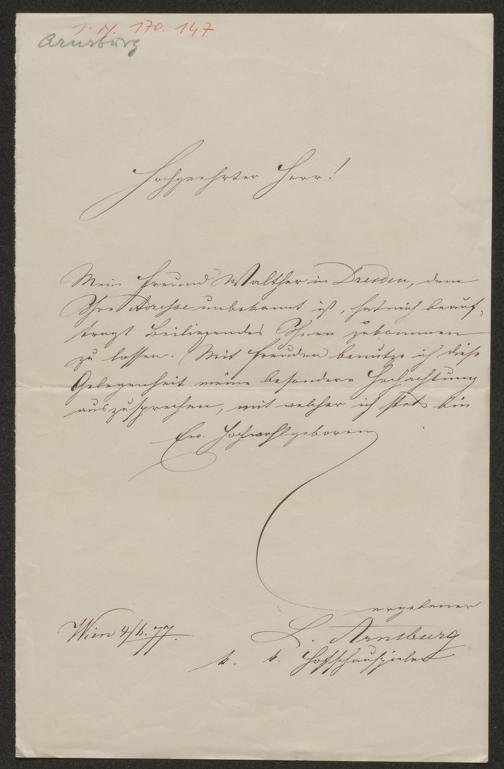 I. N. 170.147
Arnsburg
Hochgeehrter Herr!
Mein Freund Walther in Dresden, dem
Ihre Adresse unbekannt ist, hat mich beauf-
tragt Beiliegendes Ihnen zukommen
zu lassen. Mit Freuden benutze ich diese
Gelegenheit meine besondere Hochachtung
auszusprechen, mit welcher ich stets bin
Ew. Hochwohlgeboren
ergebener
Wien 4/4. 77.
L. Arnsburg
k. k. Hofschauspieler